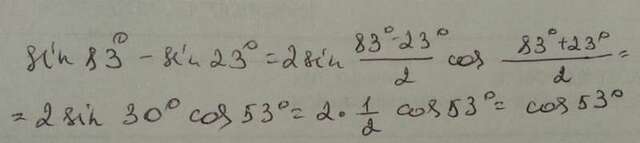 sin 83° - sin 23° = 2 sin (83° - 23°)/2 cos (83° + 23°)/2 =
= 2 sin 30° cos 53° = 2 · 1/2 cos 53° = cos 53°